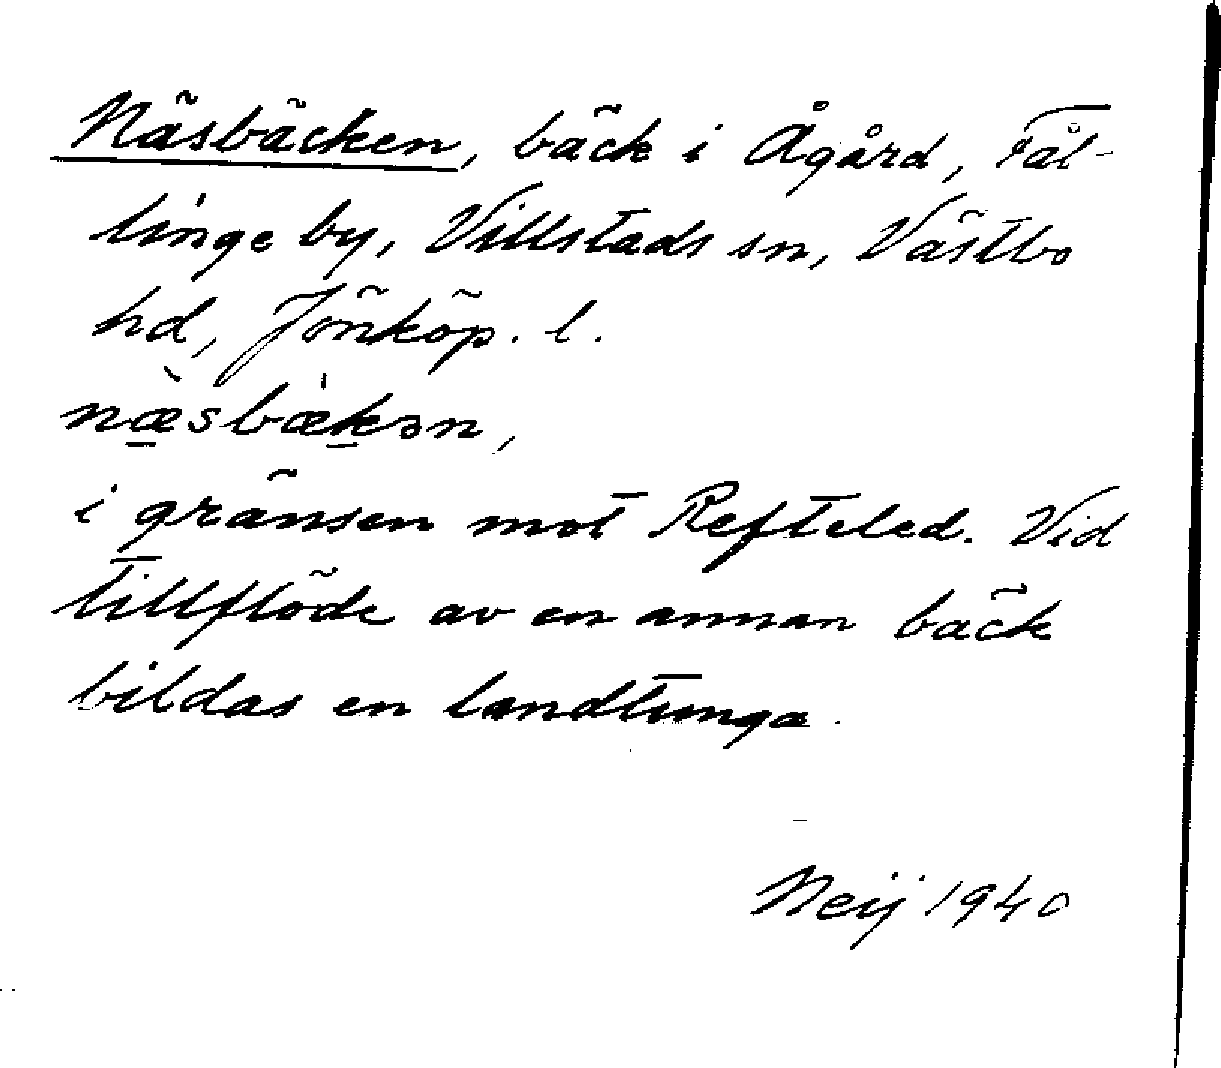 Näsbäcken, bäck i Ågård, Fål-
linge by, Villstads sn, Västbo
hd, Jönköp. l.
næ̀sbæ̀kən,
i gränsen mot Refteled. Vid
tillflöde av en annan bäck
bildas en landtunga.
Neij 1940